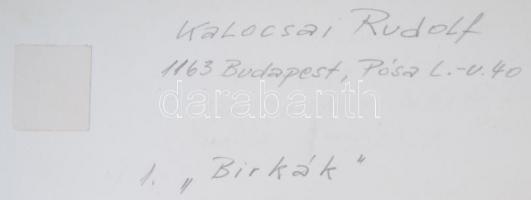 Kalocsai Rudolf
1163 Budapest, Pósa L.-u. 40
darabanth
1. „Birkák"